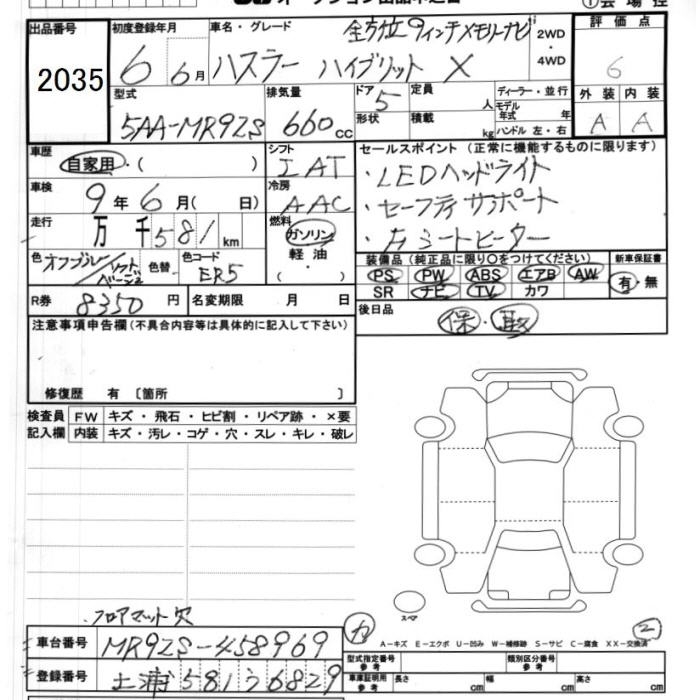 出品番号
2035
初度登録年月
6 6月
車名・グレード
全方位9インチメモリーナビ
ハスラー ハイブリット X
2WD
・
4WD
①会場控
評価点
6
外装 内装
A A
型式
5AA-MR92S
排気量
660cc
ドア 5
形状
定員 人
積載 kg
ディーラー・並行
モデル年式 年
ハンドル 左・右
車歴
自家用・( )
シフト
IAT
セールスポイント (正常に機能するものに限ります)
・LEDヘッドライト
・セーフティサポート
車検
9年6月( 日)
冷房
AAC
走行
万 千581km
燃料
ガソリン
軽油
・
( )
色 オフブルー/ソフトベージュ
色替
色コード
ER5
装備品 (純正品に限り○をつけてください)
PS PW ABS エアB AW
SR ナビ TV カワ
新車保証書
有・無
R券 8350円
名変期限 月 日
後日品
保・取
注意事項申告欄(不具合内容等は具体的に記入して下さい)
修復歴 有 〔箇所 〕
検査員記入欄
FW キズ・飛石・ヒビ割・リペア跡・×要
内装 キズ・汚レ・コゲ・穴・スレ・キレ・破レ
スペア
フロアマット欠
A-キズ E-エクボ U-凹み W-補修跡 S-サビ C-腐食 XX-交換済
2
車台番号 MR92S-458969
登録番号 土浦 581 う 6829
型式指定番号 参考
類別区分番号 参考
車庫証明用 参考
長さ cm
幅 cm
高さ cm